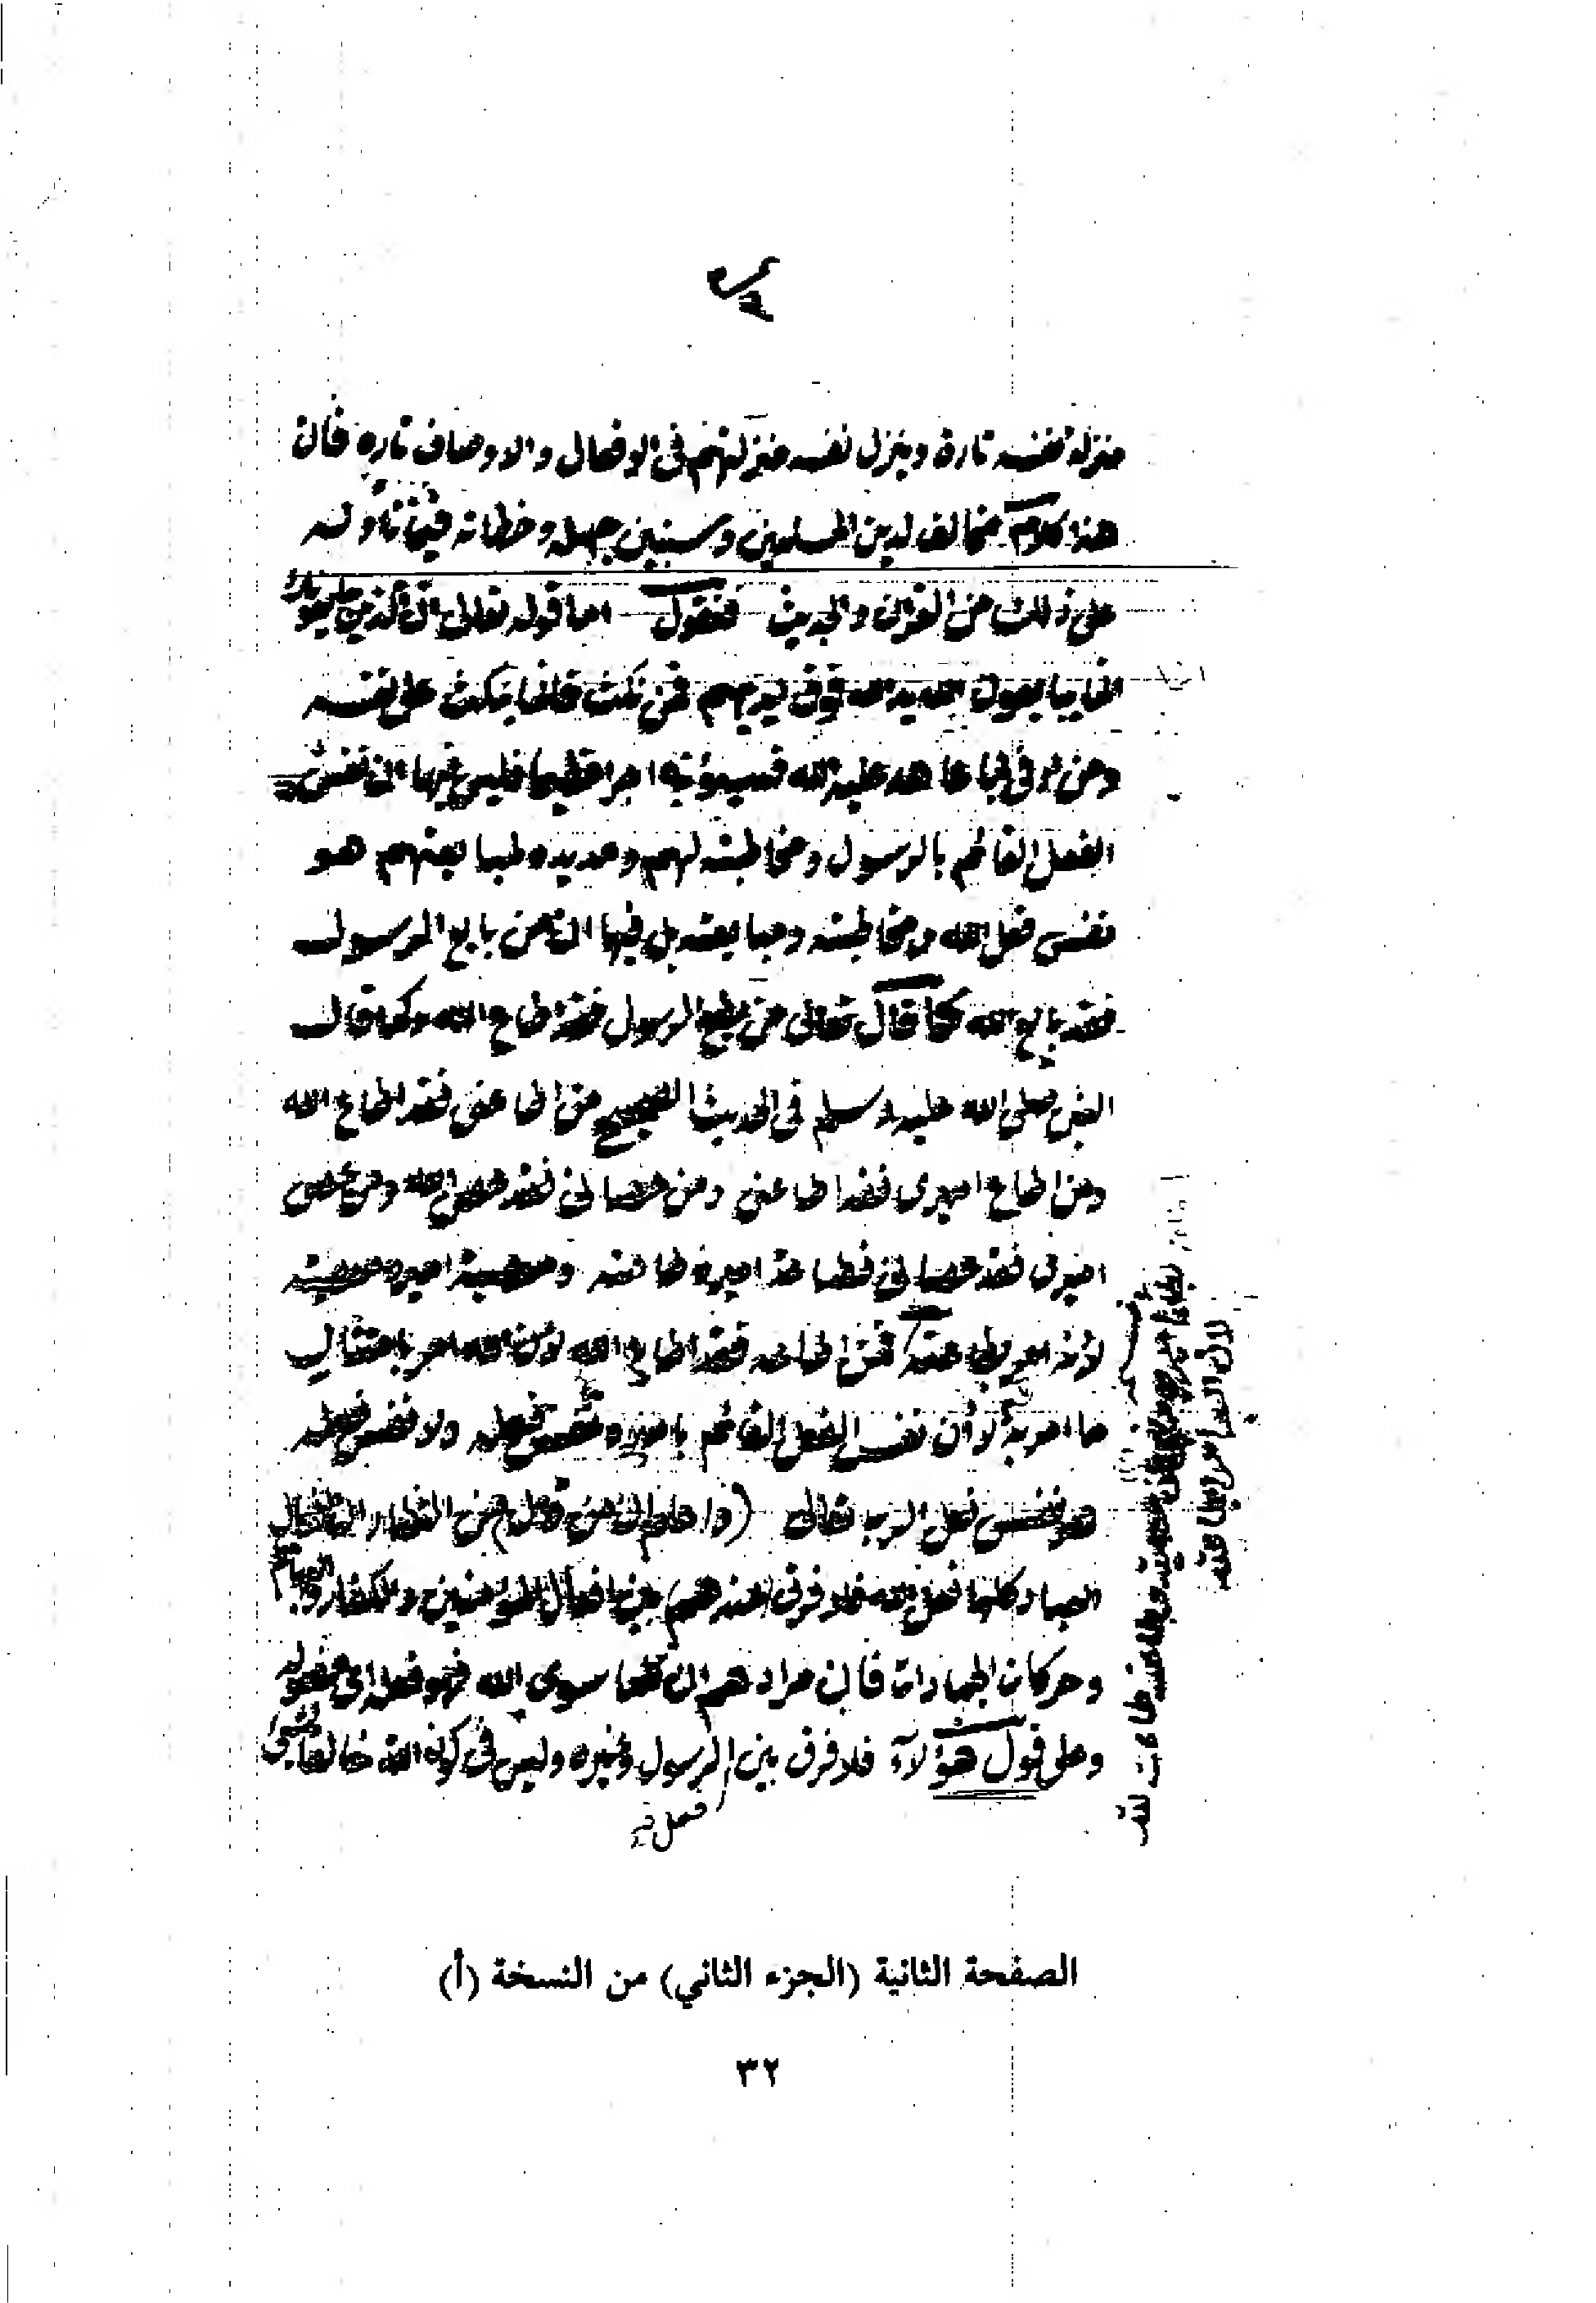 منزلة نفسه تارة وينزل نفسه منزلتهم في الافعال والاوصاف تاره فان
هذا كلام مخالف لدين المسلمين وسنبين جهله وخطائه فيما تأوله
على ذلك من القران والحديث فنقول اما قوله تعالى ان الذين يبايعونك
انما يبايعون الله يد الله فوق ايديهم فمن نكث فانما ينكث على نفسه
ومن اوفى بما عاهد عليه الله فسيؤتيه اجرا عظيما فليس فيها ان نفس
الفعل القائم بالرسول ومخاطبته لهم ومد يده لمبايعتهم هو
نفس فعل الله ومخاطبته ومبايعته بل فيها ان من بايع الرسول
فقد بايع الله كما قال تعالى من يطع الرسول فقد اطاع الله وكما قال
النبي صلى الله عليه وسلم في الحديث الصحيح من اطاعني فقد اطاع الله
ومن اطاع اميري فقد اطاعني ومن عصاني فقد عصى الله ومن عصى
اميري فقد عصاني فطاعة اميره طاعته ومعصية اميره معصيته
لأنه امر بطاعته فمن اطاعه فقد اطاع الله لان الله امر بامتثال
ما امر به لا أن نفس الفعل القائم باميره نفس فعله ولا نفس فعله
هو نفس فعل الرب تعالى (واعلم ان من قال من النظار ان افعال
العباد كلها فعل الله فلا فرق عندهم بين افعال المؤمنين والكفار والبهائم
وحركات الجمادات فان مرادهم ان كلما سوى الله فهو فعله اي مفعوله
وعلى قول هؤلآء فلا فرق بين الرسول وغيره وليس في كون الله خالقا لشيء
فعل
لان الله امر بطاعته
الصفحة الثانية (الجزء الثاني) من النسخة (أ)
٣٢